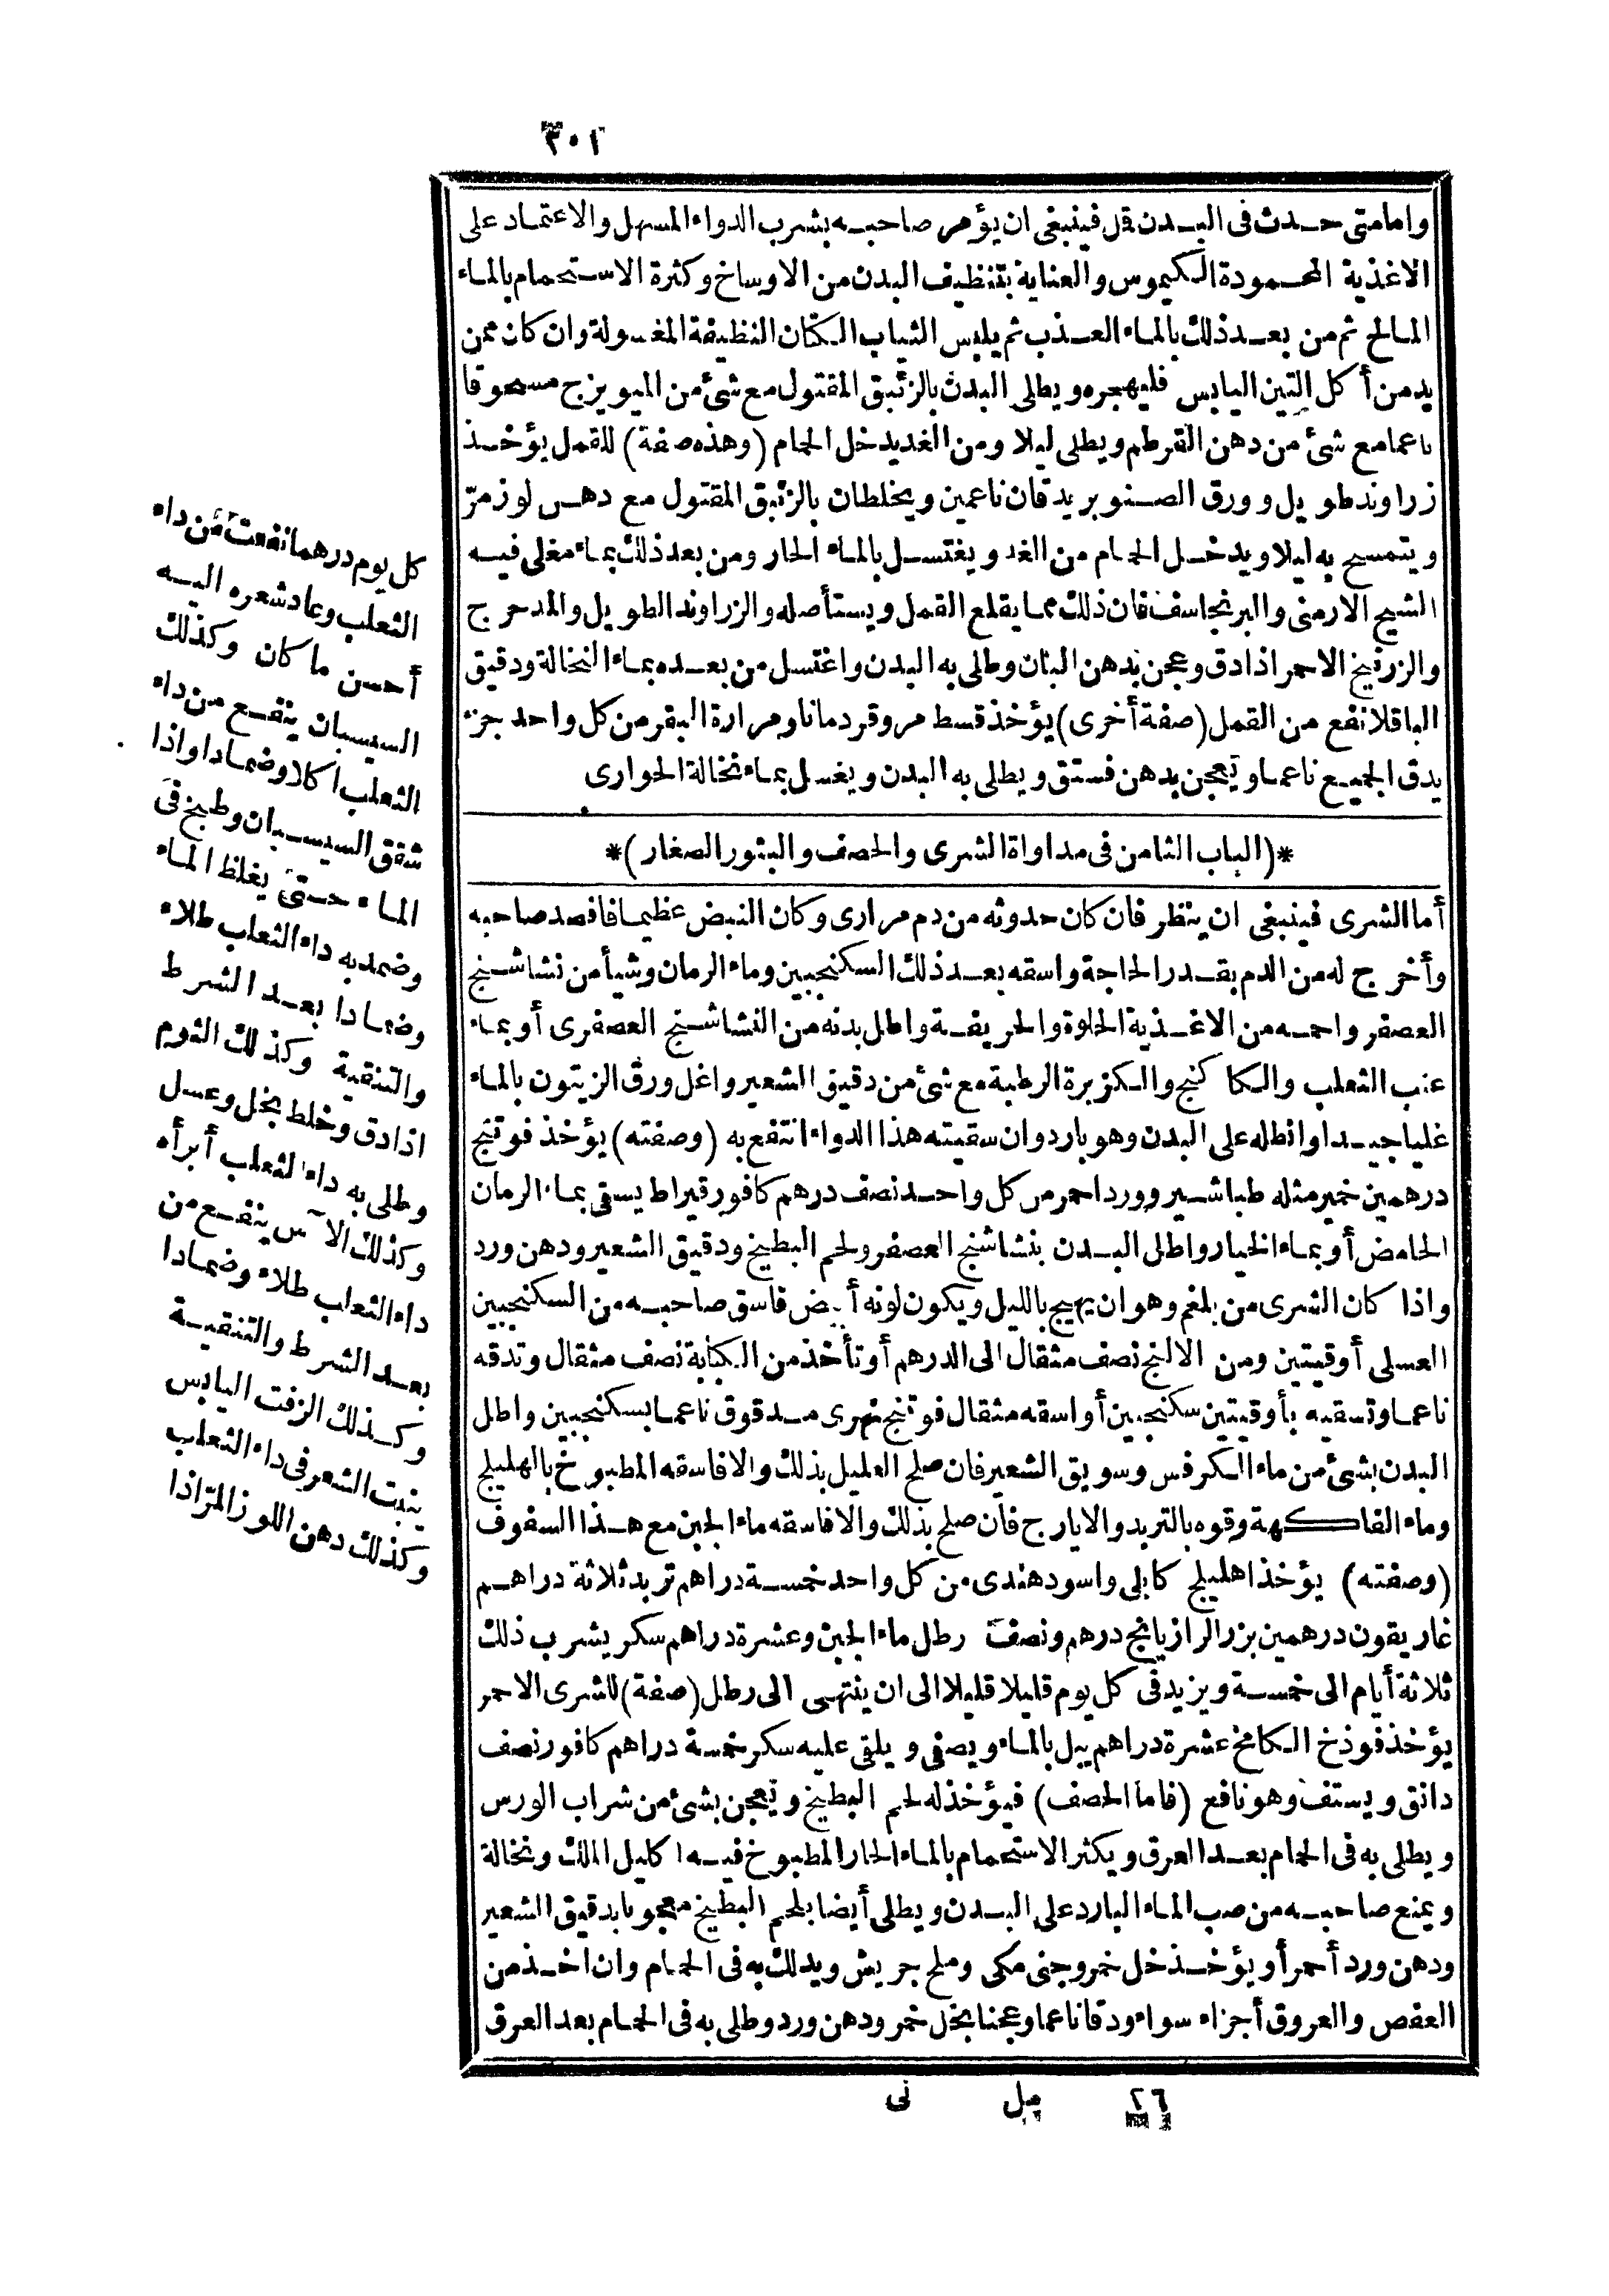 ٣٠١
وأما متى حدث فى البدن قمل فينبغى ان يؤمر صاحبه بشرب الدواء المسهل والاعتماد على
الاغذية المحمودة الكيموس والعناية بتنظيف البدن من الاوساخ وكثرة الاستحمام بالماء
المالح ثم من بعد ذلك بالماء العذب ثم يلبس الثياب الكتان النظيفة المغسولة وان كان ممن
يدمن أكل التين اليابس فليهجره ويطلى البدن بالزئبق المقتول مع شئ من الميويزج مسحوقا
ناعما مع شئ من دهن القرطم ويطلى ليلا ومن الغد يدخل الحمام (وهذه صفة) للقمل يؤخذ
زراوند طويل وورق الصنوبر يدقان ناعمين ويخلطان بالزئبق المقتول مع دهن لوز مرّ
ويتمسح به ليلا ويدخل الحمام من الغد ويغتسل بالماء الحار ومن بعد ذلك بماء مغلى فيه
الشيح الارمنى والبرنجاسف فان ذلك مما يقلع القمل ويستأصله والزراوند الطويل والمدحرج
والزرنيخ الاحمر اذا دق وعجن بدهن البان وطلى به البدن واغتسل من بعده بماء النخالة ودقيق
الباقلا نفع من القمل (صفة أخرى) يؤخذ قسط مر وقردمانا ومرارة البقر من كل واحد جزء
يدق الجميع ناعما ويعجن بدهن فستق ويطلى به البدن ويغسل بماء نخالة الحوارى
*(الباب الثامن فى مداواة الشرى والحصف والبثور الصغار)*
أما الشرى فينبغى ان ينظر فان كان حدوثه من دم مرارى وكان النبض عظيما فافصد صاحبه
وأخرج له من الدم بقدر الحاجة واسقه بعد ذلك السكنجبين وماء الرمان وشيأ من نشاشنج
العصفر واحمه من الاغذية الحلوة والحريفة واطل بدنه من النشاشنج العصفرى أو بماء
عنب الثعلب والكاكنج والكزبرة الرطبة مع شئ من دقيق الشعير واغل ورق الزيتون بالماء
غليا جيدا وانطله على البدن وهو بارد وان سقيته هذا الدواء انتفع به (وصفته) يؤخذ فوتنج
درهمين خمير مثله طباشير وورد احمر من كل واحد نصف درهم كافور قيراط يسقى بماء الرمان
الحامض أو بماء الخيار واطل البدن بنشاشنج العصفر ولحم البطيخ ودقيق الشعير ودهن ورد
واذا كان الشرى من بلغم وهو ان يهيج بالليل ويكون لونه أبيض فاسق صاحبه من السكنجبين
العسلى أوقيتين ومن الالنج نصف مثقال الى الدرهم أو تأخذ من الكبابة نصف مثقال وتدقه
ناعما وتسقيه بأوقيتين سكنجبين أو اسقه مثقال فوتنج نهرى مدقوق ناعما بسكنجبين واطل
البدن بشئ من ماء الكرفس وسويق الشعير فان صلح العليل بذلك والا فاسقه المطبوخ بالهليلج
وماء الفاكهة وقوه بالتربد والايارج فان صلح بذلك والا فاسقه ماء الجبن مع هذا السفوف
(وصفته) يؤخذ اهليلج كابلى واسود هندى من كل واحد خمسة دراهم تربد ثلاثة دراهم
غاريقون درهمين بزر الرازيانج درهم ونصف رطل ماء الجبن وعشرة دراهم سكر يشرب ذلك
ثلاثة أيام الى خمسة ويزيد فى كل يوم قليلا قليلا الى ان ينتهى الى رطل (صفة) للشرى الاحمر
يؤخذ فوذخ الكامخ عشرة دراهم يبل بالماء ويصفى ويلقى عليه سكر خمسة دراهم كافور نصف
دانق ويستف وهو نافع (فاما الحصف) فيؤخذ له لحم البطيخ ويعجن بشئ من شراب الورس
ويطلى به فى الحمام بعد العرق ويكثر الاستحمام بالماء الحار المطبوخ فيه اكليل الملك ونخالة
ويمنع صاحبه من صب الماء البارد على البدن ويطلى أيضا بلحم البطيخ معجونا بدقيق الشعير
ودهن ورد أحمر أو يؤخذ خل خمر وجنى مكى وملح جريش ويدلك به فى الحمام وان اخذ من
العفص والعروق أجزاء سواء ودقا ناعما وعجنا بخل خمر ودهن ورد وطلى به فى الحمام بعد العرق
٢٦ مل نى
كل يوم درهما نفعت من داء
الثعلب وعاد شعره اليه
أحسن ما كان وكذلك
السيسبان ينفع من داء
الثعلب أكلا وضمادا واذا
شقق السيسبان وطبخ فى
الماء حتى يغلظ الماء
وضمد به داء الثعلب طلاء
وضمادا بعد الشرط
والتنقية وكذلك الثوم
اذا دق وخلط بخل وعسل
وطلى به داء الثعلب أبرأه
وكذلك الآس ينفع من
داء الثعلب طلاء وضمادا
بعد الشرط والتنقية
وكذلك الزفت اليابس
ينبت الشعر فى داء الثعلب
وكذلك دهن اللوز المرّ اذا